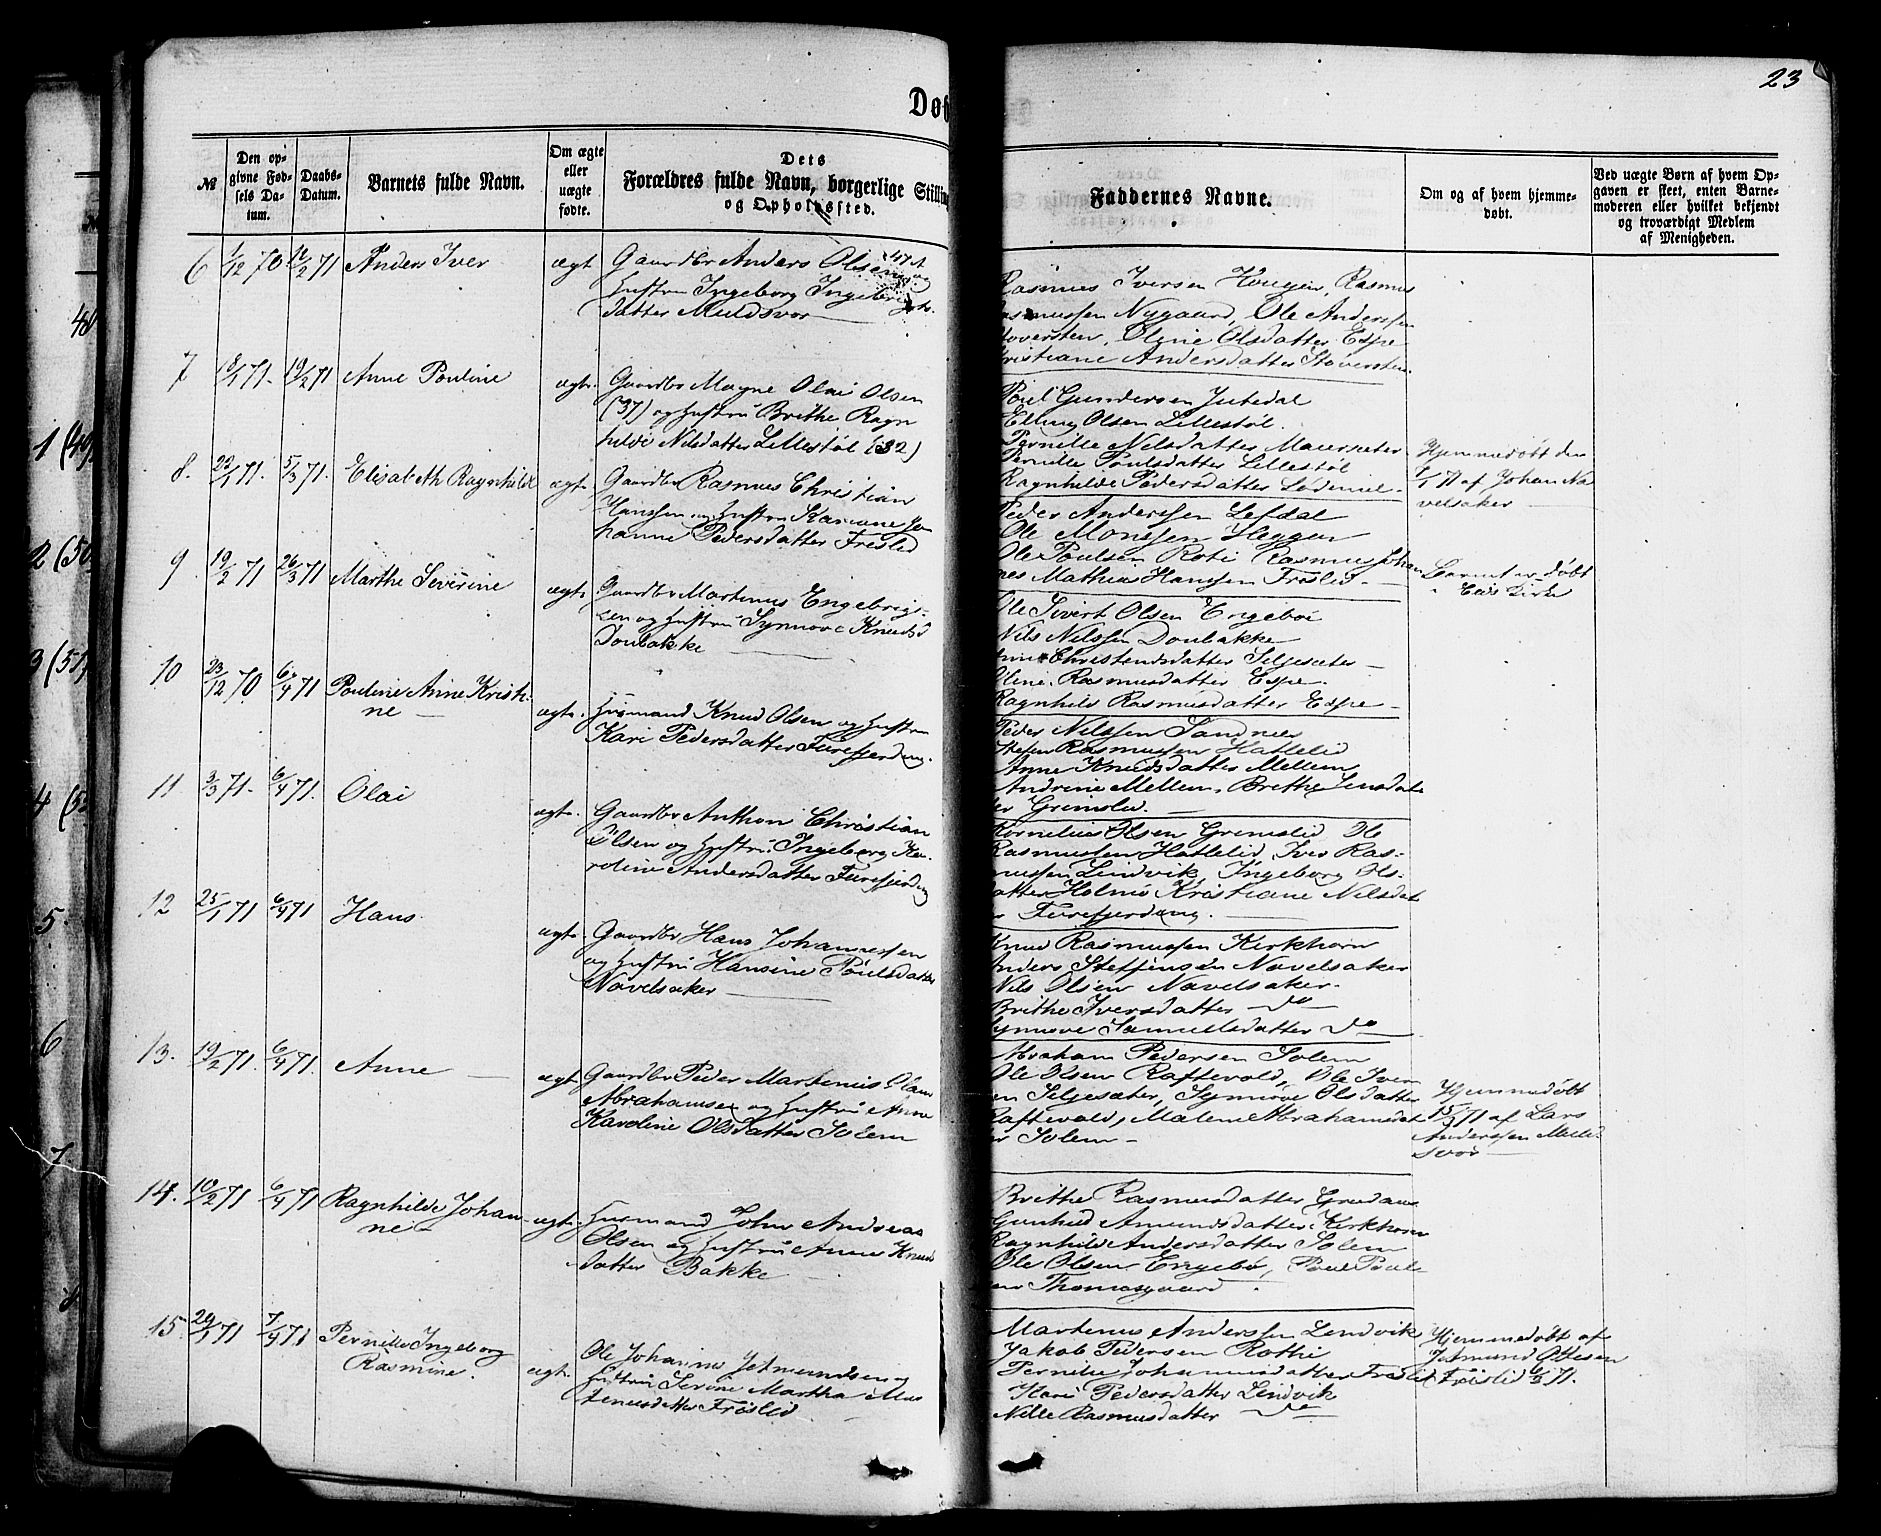 23
Døb
№
Den op-
givne Fød-
sels Da-
tum.
Daabs-
Datum.
Barnets fulde Navn.
Om ægte
eller
uægte
fødte.
Dets
Forældres fulde Navn, borgerlige Stilling
og Opholdssted.
Faddernes Navne.
Om og af hvem hjemme-
døbt.
Ved uægte Børn af hvem Op-
gaven er skeet, enten Barne-
moderen eller hvilket bekjendt
og troværdigt Medlem
af Menigheden.
6 1/12 70 12/2 71 Anders Iver ægt Gaardbr Anders Olsen og
Hustru Ingeborg Ingebrigts
datter Muldsvor
Rasmus Iversen Haugen, Rasmus
Rasmussen Nygaard, Ole Anderssen
Stoversten, Oline Olsdatter Espe
Kristiane Andersdatter Stoversten
7 18/1 71 19/2 71 Anne Pouline ægt. Gaardbr Magne Olai Olsen
(37) og Hustru Brithe Ragn
hilde Nilsdatter Lillestøl (32)
Poul Gundersen Jutedal
Elling Olsen Lillestøl.
Pernille Nilsdatter
Pernille Poulsdatter Lillestøl
Ragnhilde Pedersdatter Lødemel
8. 22/1 71. 5/3 71. Elisabeth Ragnhilde ægt. Gaardbr Rasmus Christian
Hanssen og Hustru Kariane Jo
hanne Pedersdatter Frislid
Peder Anderssen Lefdal
Ole Monssen Heggen
Ole Poulsen Roti Rasmus Johan
nes Mathias Hanssen Frøslid
Hjemmedøbt den
71 af Johan Na
velsaker
9. 19/2 71 26/3 71 Marthe Severine ægt. Gaardbr Martinus Engebrigt-
sen og Hustru Synnove Knudsd
Doubakke
Ole Sivert Olsen Engebøe
Nils Nilssen Doubakke
Anne Christensdatter Seljesæter
Oline Rasmusdatter Espe.
Ragnhild Rasmusdatter Espe
Barnet er døbt
Eids Kirke
10 23/12 70 6/4 71 Pouline Anne Kristi-
ne
ægt. Husmand Knud Olsen og Hustru
Kari Pedersdatter Furefjerdung.
Peder Nilssen Sandnes
Steffen Rasmussen Hattelid
Anne Knudsdatter Mellem
Andrine Mellem. Brithe Jensdat
ter Grimslid.
11 3/3 71. 6/4 71. Olai ægt. Gaardbr Anthon Christian
Olsen og Hustru Ingeborg Ka-
roline Andersdatter Furefjerdung
Kornelius Olsen Grimslid Ole
Rasmussen Hattelid, Iver Ras-
mussen Lindvik, Ingeborg Ols-
datter Holme Kristiane Nilsdat
ter Furefjerdung.
12 25/1 71 6/4 71 Hans. ægt. Gaardbr Hans Johannessen
og Hustru Hansine Poulsdatter
Navelsaker
Knud Rasmussen Kirkhorn
Anders Steffensen Navelsaker
Nils Olsen Navelsaker.
Brithe Iversdatter Do
Synnove Samuelsdatter Do
13. 19/2 71. 6/4 71. Anne ægt Gaardbr Peder Martinus Olaus
Abrahamsen og Hustru Anne
Karoline Olsdatter Solem
Abraham Pedersen Solem
Ole Olsen Raftevold, Ole Iver
sen Seljesæter, Synnøve Olsdatter
Raftevold, Malene Abrahamsdat
ter Solem
Hjemmedøbt
71 af Lars
Anderssen Mulds-
svor
14. 10/2 71 6/4 71 Ragnhilde Johan-
ne
ægt. Husmand John Andreas
Olsen og Hustru Anne Knuds
datter Bakke
Brithe Rasmusdatter
Gunhild Amundsdatter Kirkhorn
Ragnhilde Andersdatter Solem
Ole Olsen Engebø, Poul Poul-
sen Thomasgaard.
15. 29/1 71 7/4 71 Pernille Ingeborg
Rasmine.
ægt. Ole Johannes Jetmundsen og
Hustru Serine Martha Mar
tinusdatter Frøslid
Martinus Anderssen Lindvik
Jakob Pedersen Rothi
Pernille Johannesdatter Frøslid
Kari Pedersdatter Lindvik
Nille Rasmusdatter Do
Hjemmedøbt af
Jetmund Ottesen
Frøslid 71.
48
1 (49
2 (50
3 (51
4 (52
5.
6
7.
8